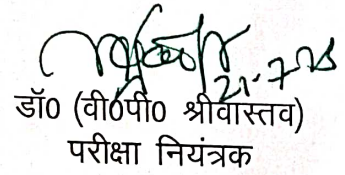 21-7-25
डॉ0 (वी0पी0 श्रीवास्तव)
परीक्षा नियंत्रक